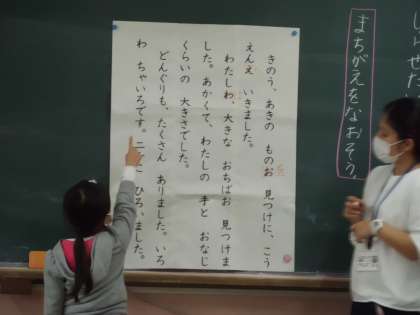 まちがえをなおそう。
きのう、あきの ものお 見つけに、こう
を
えんえ いきました。
わたしわ、大きな おちばお 見つけま
した。あかくて、わたしの 手と おなじ
くらいの 大きさでした。
どんぐりも、たくさん ありました。いろ
わ ちゃいろです。こ ひろいました。